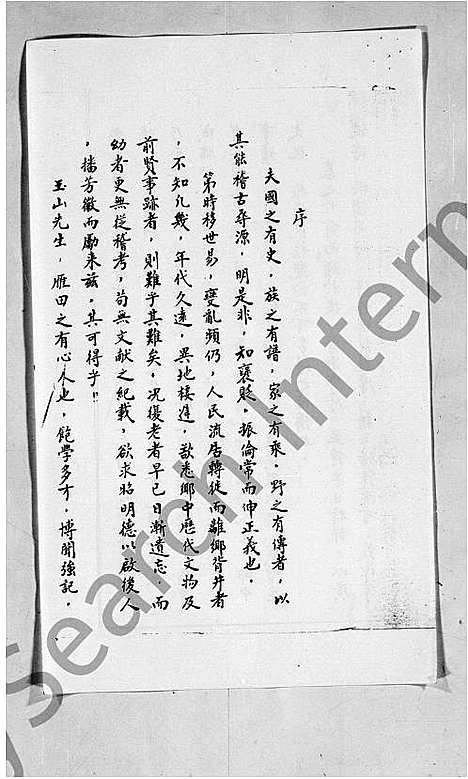 序
夫國之有史，族之有譜，家之有乘，野之有傳者，以
其能稽古尋源，明是非，知襃貶，振倫常而伸正義也，
第時移世易，變亂頻仍，人民流居轉徙而離鄉背井者
，不知凡幾，年代久遠，異地棲遲，欲悉鄉中歷代文物及
前賢事跡者，則難乎其難矣，况復老者早已日漸遺忘，而
幼者更無從稽考，苟無文献之紀載，欲求昭明德以啟後人
，播芳徽而勵来兹，其可得乎！！
玉山先生，雁田之有心人也，飽學多才，博聞強記，
Search Intern